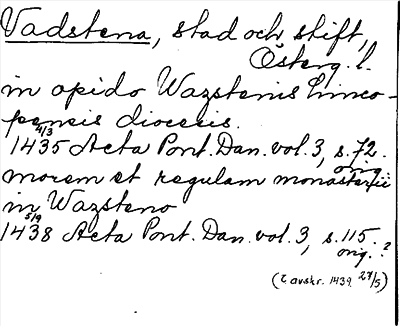 Vadstena, stad och stift,
Österg. l.
in opido Wazstenis Linco-
pensis diocesis.
4/3
1435 Acta Pont. Dan. vol. 3, s. 72.
orig.
morem et regulam monasterii
in Wazsteno
5/9
1438 Acta Pont. Dan. vol. 3, s. 115.
orig.?
(t avskr. 1439 27/5)